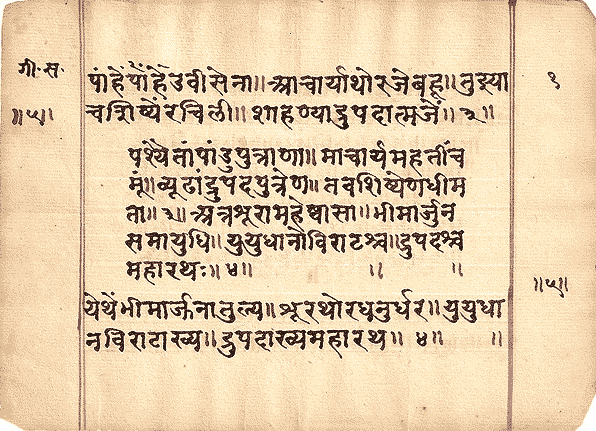 गी॰ स॰
१
पांहें पांहें उवी सेना॥ आचार्या थोर जे बहू॥ तुझ्या
च शिष्यें रचिली॥ शाहण्या द्रुपदात्मजें॥ ३॥
॥५॥
पश्यैतां पांडुपुत्राणा॥ माचार्य महतीं च
मूं॥ व्यूढां द्रुपदपुत्रेण॥ तव शिष्येण धीम
ता॥ ३॥ अत्र शूरा महेष्वासा॥ भीमार्जुन
समा युधि॥ युयुधानो विराटश्च॥ द्रुपदश्च
महारथः॥ ४॥ ॥ ॥
॥५॥
येथें भीमार्जुना तुल्य॥ शूर थोर धनुर्धर॥ युयुधा
न विराटाख्य॥ द्रुपदाख्य महारथ॥ ४॥ ॥